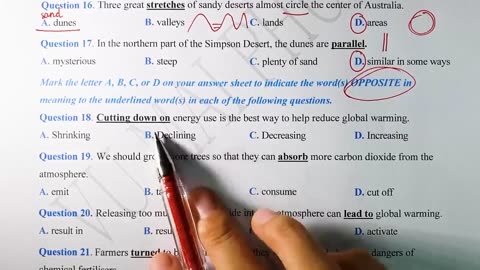 Question 16. Three great stretches of sandy deserts almost circle the center of Australia.
sand
A. dunes B. valleys C. lands D. areas
Question 17. In the northern part of the Simpson Desert, the dunes are parallel.
A. mysterious B. steep C. plenty of sand D. similar in some ways
Mark the letter A, B, C, or D on your answer sheet to indicate the word(s) OPPOSITE in
meaning to the underlined word(s) in each of the following questions.
Question 18. Cutting down on energy use is the best way to help reduce global warming.
A. Shrinking B. Declining C. Decreasing D. Increasing
Question 19. We should more trees so that they can absorb more carbon dioxide from the
atmosphere.
A. emit B. C. consume D. cut off
Question 20. Releasing too atmosphere can lead to global warming.
A. result in B. D. activate
Question 21. Farmers turned to dangers of
chemical fertilisers.